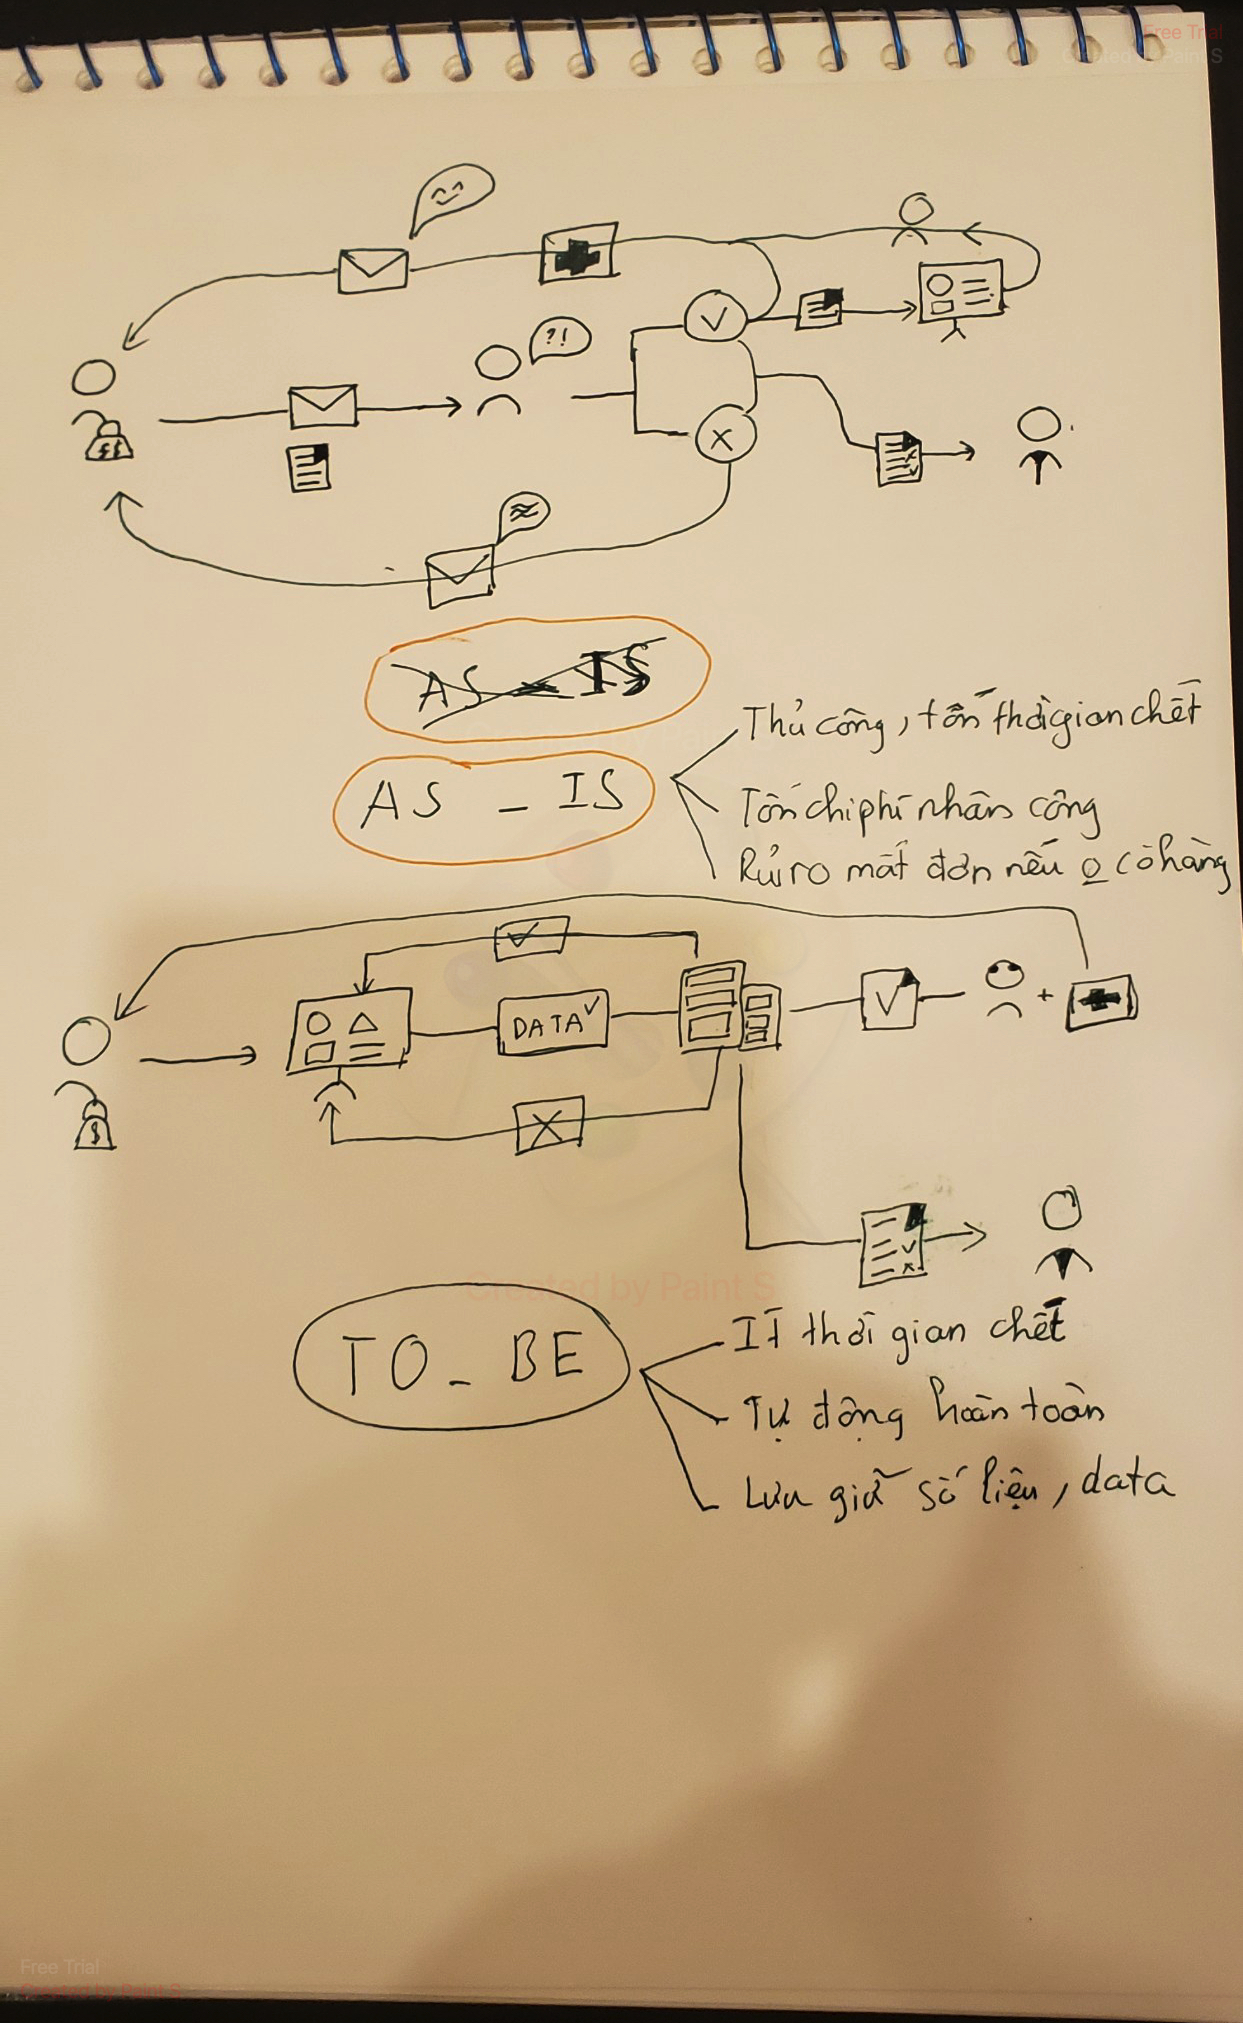 Free Trial
Created by Paint S
?!
$$
AS - IS
AS - IS
Thủ công, tốn thời gian chết
Tốn chi phí nhân công
Rủi ro mất đơn nếu o có hàng
DATA
$
Created by Paint S
TO - BE
Ít thời gian chết
Tự động hoàn toàn
Lưu giữ số liệu, data
Free Trial
Created by Paint S